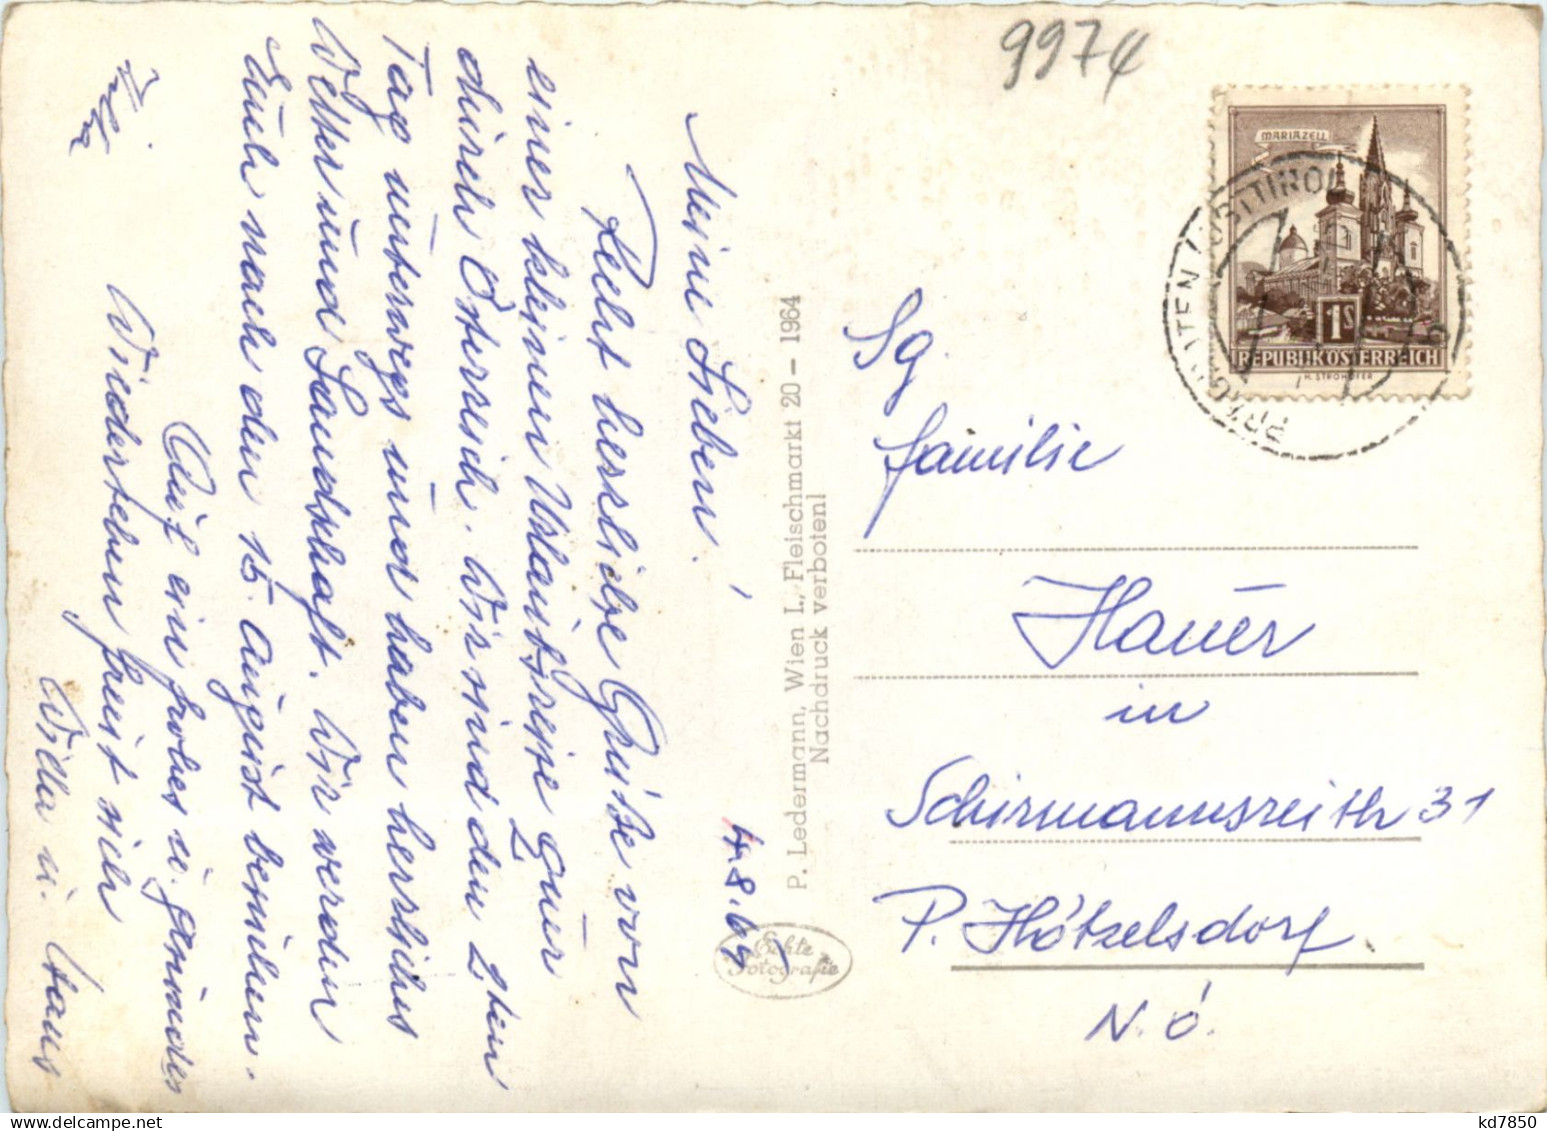 9974
MARIAZELL
1S
REPUBLIK ÖSTERREICH
H. STROHOFER
OSTTIROL
Meine Lieben!
Recht herzliche Grüße von
einer kleinen Urlaubsreise quer
durch Österreich. Wir sind den 2ten
Tag unterwegs und haben herrliches
Wetter und Landschaft. Wir werden
Euch nach den 15. August besuchen.
Auf ein frohes u. gesundes
Wiedersehen freut sich
Willa u. Hans
4.8.64
P. Ledermann, Wien I., Fleischmarkt 20 – 1964
Nachdruck verboten!
Echte
Fotografie
Sg.
Familie
Hauer
in
Schirmannsreith 31
P. Hötzelsdorf
N.Ö.
kd7850